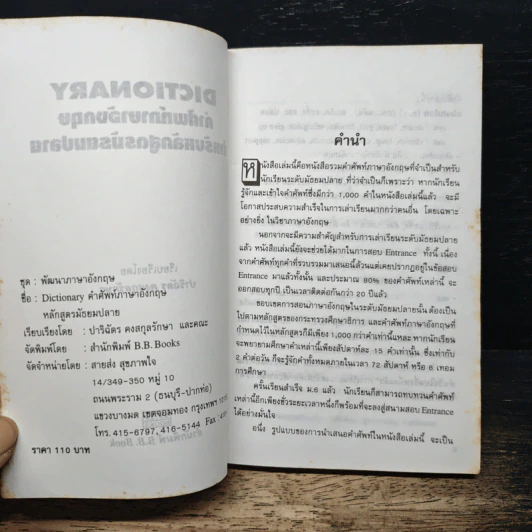 ชุด : พัฒนาภาษาอังกฤษ
ชื่อ : Dictionary คำศัพท์ภาษาอังกฤษ
หลักสูตรมัธยมปลาย
เรียบเรียงโดย : ปาริฉัตร คงสกุลรักษา และคณะ
จัดพิมพ์โดย : สำนักพิมพ์ B.B. Books
จัดจำหน่ายโดย : สายส่ง สุขภาพใจ
14/349-350 หมู่ 10
ถนนพระราม 2 (ธนบุรี-ปากท่อ)
แขวงบางมด เขตจอมทอง กรุงเทพฯ
โทร. 415-6797, 416-5144 Fax
ราคา 110 บาท
คำนำ
หนังสือเล่มนี้คือหนังสือรวมคำศัพท์ภาษาอังกฤษที่จำเป็นสำหรับ
นักเรียนระดับมัธยมปลาย ที่ว่าจำเป็นก็เพราะว่า หากนักเรียน
รู้จักและเข้าใจคำศัพท์ซึ่งมีกว่า 1,000 คำในหนังสือเล่มนี้แล้ว จะมี
โอกาสประสบความสำเร็จในการเล่าเรียนมากกว่าคนอื่น โดยเฉพาะ
อย่างยิ่ง ในวิชาภาษาอังกฤษ
นอกจากจะมีความสำคัญสำหรับการเล่าเรียนระดับมัธยมปลาย
แล้ว หนังสือเล่มนี้ยังจะช่วยได้มากในการสอบ Entrance ทั้งนี้ เนื่อง
จากคำศัพท์ทุกคำที่รวบรวมมาเสนอนี้ล้วนแต่เคยปรากฏอยู่ในข้อสอบ
Entrance มาแล้วทั้งนั้น และประมาณ 80% ของคำศัพท์เหล่านี้ จะ
ออกสอบทุกปี เป็นเวลาติดต่อกันกว่า 20 ปีแล้ว
ขอบเขตการสอนภาษาอังกฤษในระดับมัธยมปลายนั้น ต้องเป็น
ไปตามหลักสูตรของกระทรวงศึกษาธิการ และคำศัพท์ภาษาอังกฤษที่
กำหนดไว้ในหลักสูตรก็มีเพียง 1,000 กว่าคำเท่านี้แหละ หากนักเรียน
จะพยายามศึกษาคำเหล่านี้เพียงสัปดาห์ละ 15 คำเท่านั้น ซึ่งเท่ากับ
2 คำต่อวัน ก็จะรู้จักคำทั้งหมดภายในเวลา 72 สัปดาห์ หรือ 6 เทอม
การศึกษา
ครั้นเรียนสำเร็จ ม.6 แล้ว นักเรียนก็สามารถทบทวนคำศัพท์
เหล่านี้อีกเพียงชั่วระยะเวลาหนึ่งก็พร้อมที่จะลงสู่สนามสอบ Entrance
ได้อย่างมั่นใจ
อนึ่ง รูปแบบของการนำเสนอคำศัพท์ในหนังสือเล่มนี้ จะเป็น